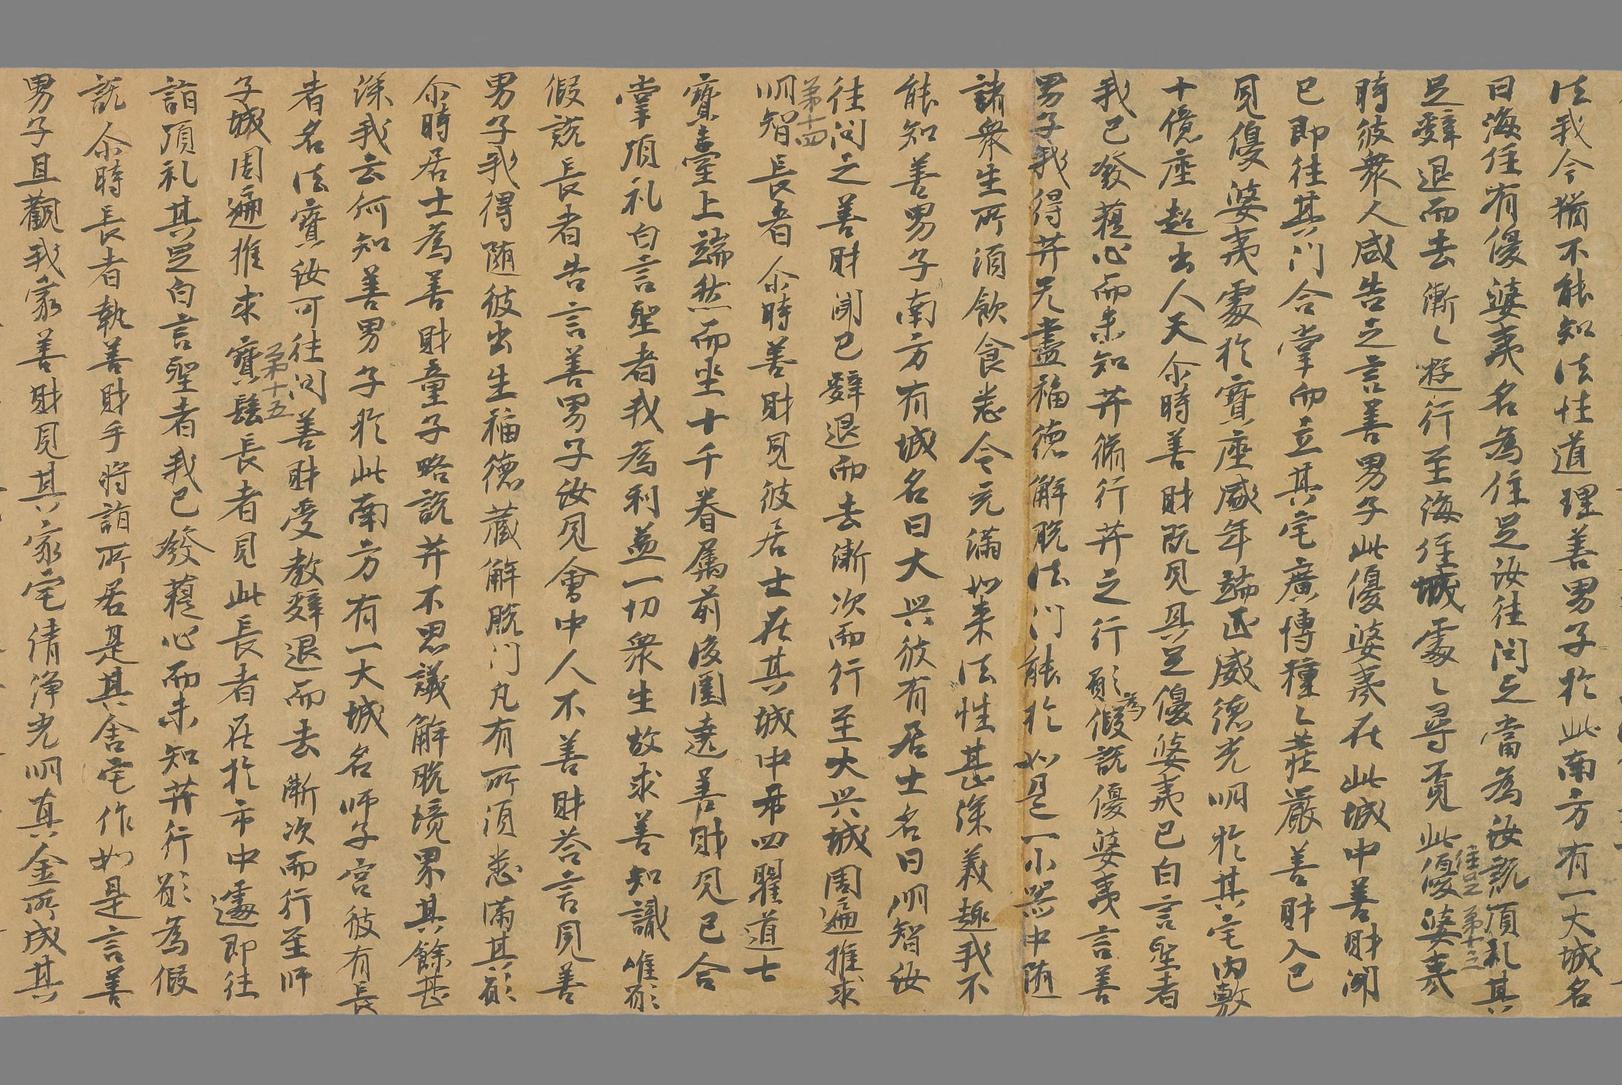 法我今猶不能知法性道理善男子於此南方有一大城名
曰海住有優婆夷名為住足汝往問之當為汝說頂礼其
足辞退而去漸〻遊行至海住城處〻尋覓此優婆夷
住足
第十三
時彼衆人咸告之言善男子此優婆夷在此城中善財聞
已即往其門合掌而立其宅廣博種〻莊嚴善財入已
見優婆夷處於寶座盛年端正威德光明於其宅內敷
十億座超出人天尒時善財既見具足優婆夷已白言聖者
我已發菩提心而未知菩薩修行菩薩之行願為假說優婆夷言善
男子我得菩薩无盡福德解脫法門能於如是一小器中隨
諸衆生所須飲食悉令充滿如来法性甚深義趣我不
能知善男子南方有城名曰大興彼有居士名曰明智汝
往問之善財聞已辞退而去漸次而行至大興城周遍推求
第十四
明智長者尒時善財見彼居士在其城中市四瞿道七
寶臺上端然而坐十千眷属前後圍遶善財見已合
掌頂礼白言聖者我為利益一切衆生故求善知識唯願
假說長者告言善男子汝見會中人不善財荅言見善
男子我得随彼出生福德藏解脫門凡有所須悉滿其願
尒時居士為善財童子略說菩薩不思議解脫境界其餘甚
深我云何知善男子於此南方有一大城名師子宮彼有長
者名法寶汝可往問善財受教辞退而去漸次而行至師
第十五
子城周遍推求寶髻長者見此長者在於市中遽即往
詣頂礼其足白言聖者我已發菩提心而未知菩薩行願為假
說尒時長者執善財手將詣所居是其舍宅作如是言善
男子且觀我家善財見其家宅清淨光明真金所成其